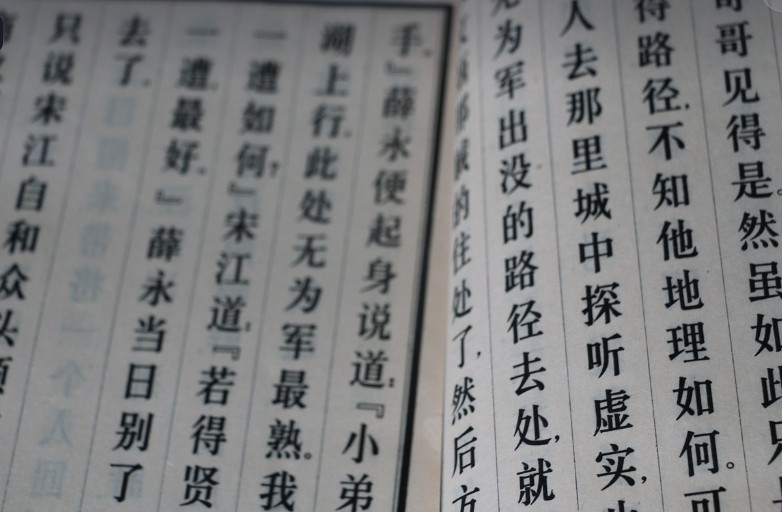 哥见得是。然虽如此只
得路径，不知他地理如何。可
人去那里城中探听虚实，
无为军出没的路径去处，就
的住处了，然后方
手。』薛永便起身说道：『小弟
湖上行。此处无为军最熟。我
一遭如何？』宋江道：『若得贤
一遭最好。』薛永当日别了
去了。
只说宋江自和众头领